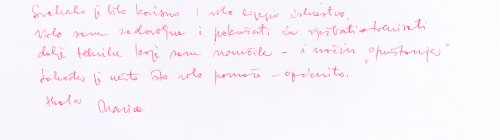 Svakako je bilo korisno i vrlo lijepo iskustvo.
Vrlo sam zadovoljna i pokušati ću vježbati i trenirati
dalje tehnike koje sam naučila - i način "opuštanja"
također je nešto što vrlo pomaže - općenito.
Hvala Marica